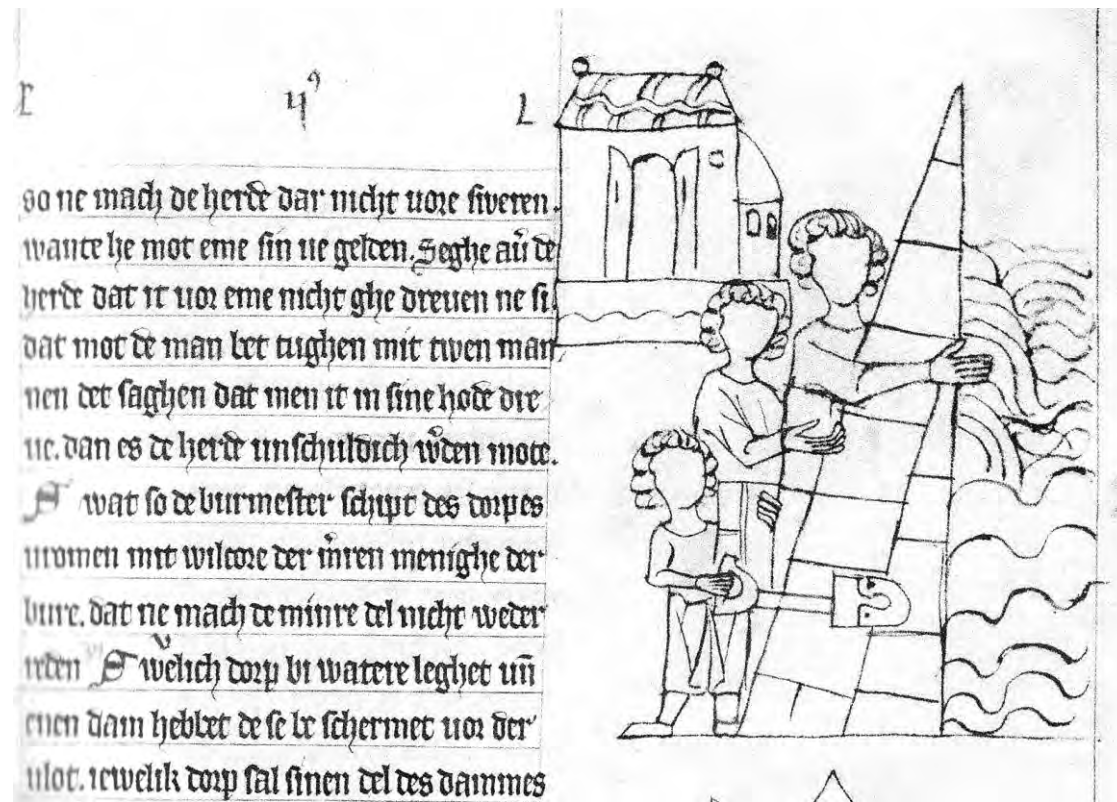 so ne mach de herde dar nicht uore sweren.
wante he mot eme sin ue gelden. Seghe au̅ de
herde dat it uor eme nicht ghe dreuen ne si
dat mot de man bet tughen mit twen man
nen det saghen dat men it in sine hode dre
ue. dan es de herde unschuldich w̅den mote.
Swat so de burmester schipt des dorpes
uromen mit wilcore der m̅ren menighe der
bure. dat ne mach de minre del nicht weder
reden Swelich dorp bi watere leghet un̅
enen dam hebbet de se be schermet uor der
ulot. iewelik dorp sal sinen del des dammes